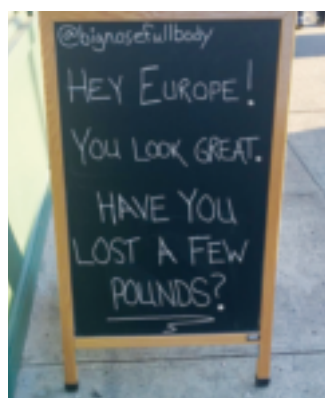 @bignosefullbody
HEY EUROPE!
YOU LOOK GREAT.
HAVE YOU
LOST A FEW
POUNDS?